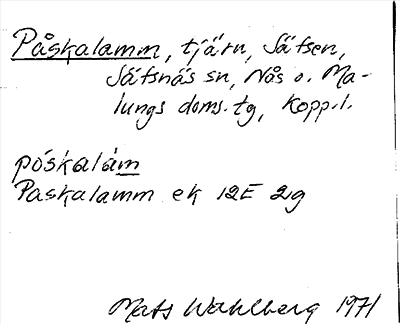 Påskalamm, tjärn, Säfsen,
Säfsnäs sn, Nås o. Ma-
lungs doms. tg, Kopp. l.
påskalàm
Paskalamm ek 12E 2g
Mats Wahlberg 1971